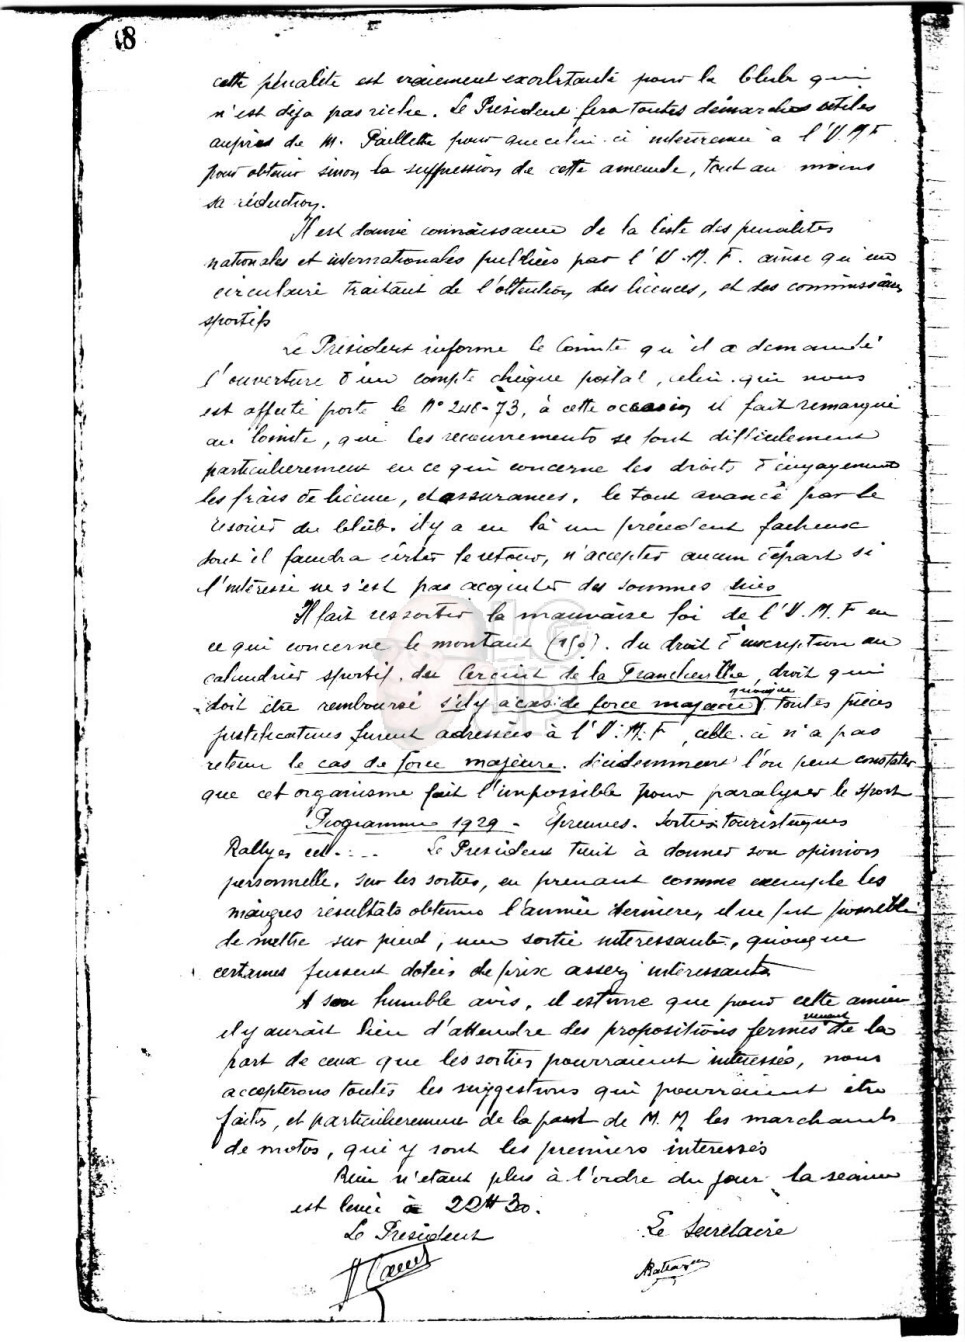 68
cette pénalité est vraiement exorbitante pour le Club qui
n'est déja pas riche. Le Président fera toutes démarches utiles
auprès de M. Paillette pour que celui-ci intervienne à l'U.M.F
pour obtenir sinon la suppression de cette amende, tout au moins
sa réduction.
Il est donné connaissance de la liste des penalités
nationales et internationales publiées par l'U.M.F. ainsi qu'une
circulaire traitant de l'obtention des licences, et des commissaires
sportifs
Le Président informe le Comité qu'il a demandé
l'ouverture d'un compte chèque postal, celui qui nous
est affecté porte le N° 248-73, à cette occasion il fait remarquer
au Comité, que les recouvrements se font difficilement
particulierement en ce qui concerne les droits d'engagement
les frais de licence, et assurances. le tout avancé par le
tresorier du Club. il y a eu là un précédent facheux
dont il faudra éviter le retour, n'accepter aucun départ si
l'intéressé ne s'est pas acquitter des sommes dues
Il fait ressortir la mauvaise foi de l'U.M.F en
ce qui concerne le montant (150). du droit d'inscription au
calendrier sportif. du Circuit de la Trancheuthe, droit qui
doit être remboursé s'il y a cas de force majeure quoique toutes pièces
justificatives furent adressées à l'U.M.F, celle-ci n'a pas
retenu le cas de force majeure. Evidemment l'on peut constater
que cet organisme fait l'impossible pour paralyser le sport
Programme 1929 - Epreuves. Sorties touristiques
Rallyes ect... Le Président tient à donner son opinion
personnelle, sur les sorties, en prenant comme exemple les
maigres résultats obtenus l'année dernière, il ne fut possible
de mettre sur pied, une sortie interessante, quoique
certaines fussent dotées de prix assez intéressants
A son humble avis, il estime que pour cette année
il y aurait lieu d'attendre des propositions fermes venant de la
part de ceux que les sorties pourraient intéressés, nous
accepterons toutes les suggestions qui pourraient être
faites, et particulierement de la part de M.M les marchands
de motos, qui y sont les premiers interessés
Rien n'étant plus à l'ordre du jour la séance
est levée à 22H30.
Le Président Le Secrétaire